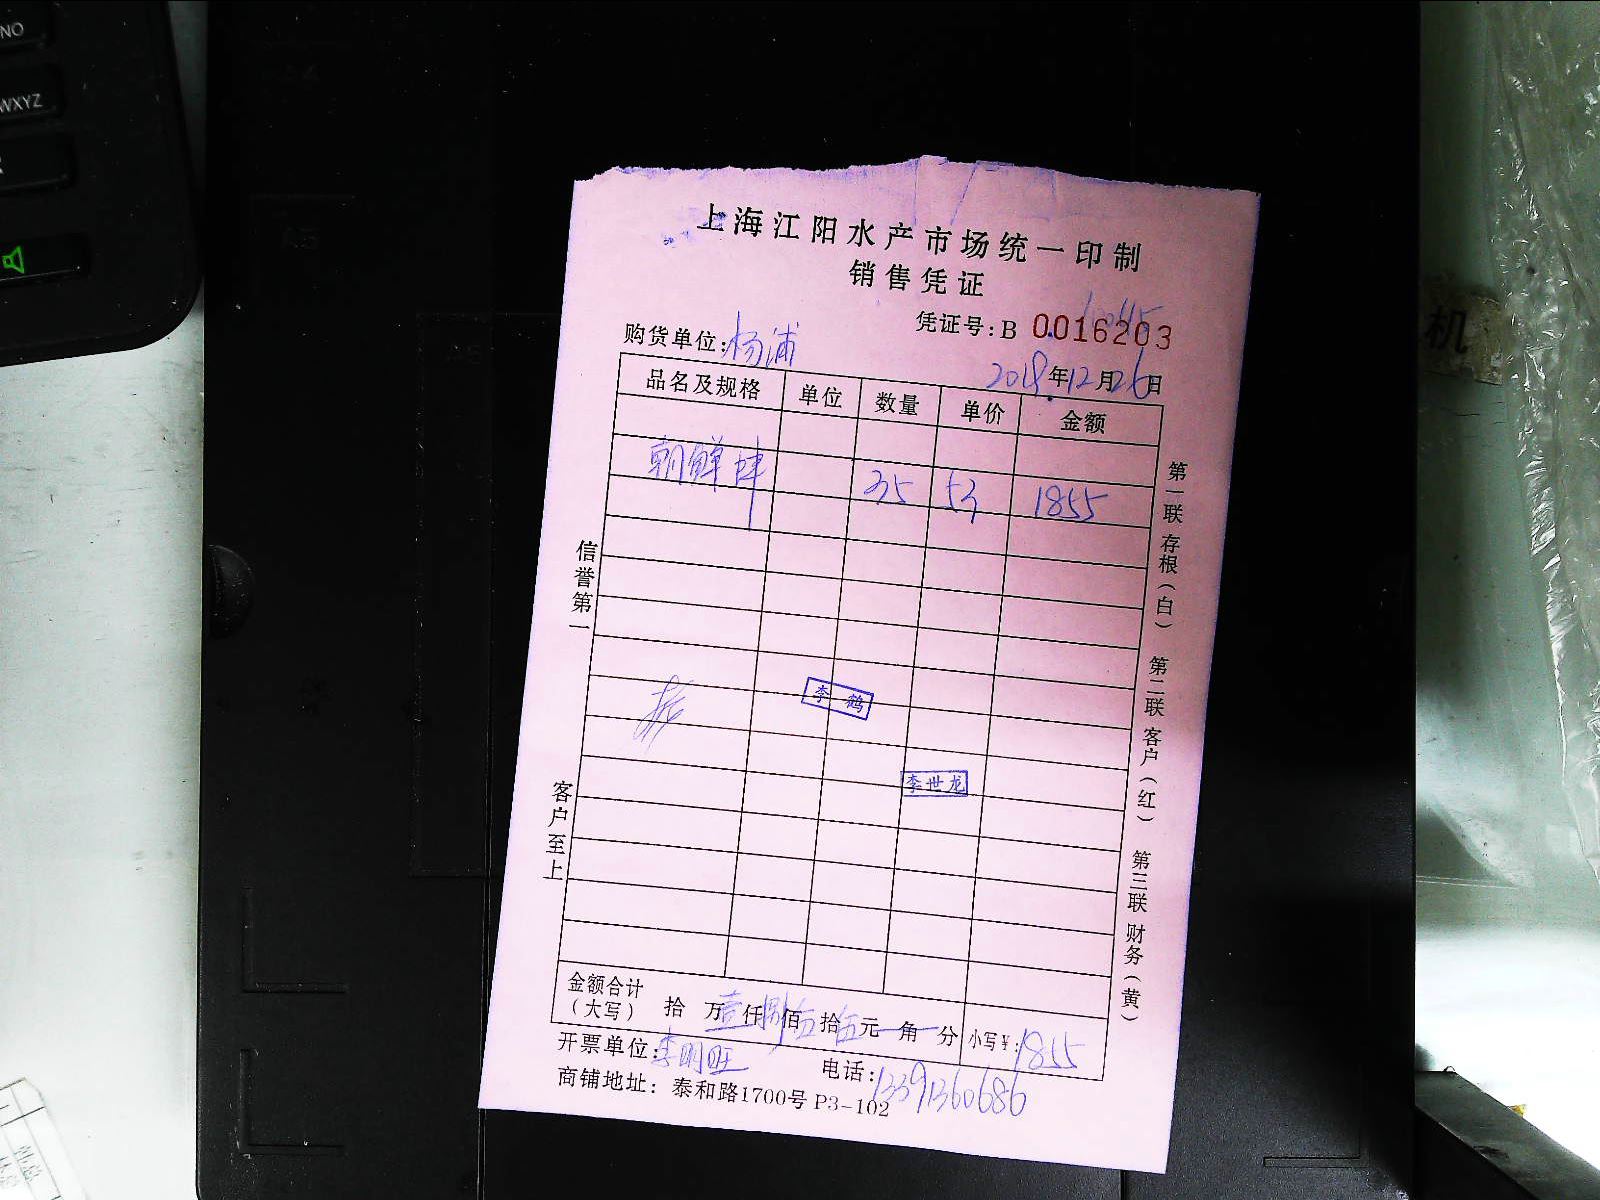 NO
WXYZ
上海江阳水产市场统一印制
销售凭证
凭证号:B 0016203
购货单位:杨浦
2018年12月26日
品名及规格 单位 数量 单价 金额
朝鲜蚌 35 53 1855
信誉第一
客户至上
第一联 存根(白) 第二联 客户(红) 第三联 财务(黄)
李鹤
李世龙
金额合计
(大写) 拾 万壹仟捌佰伍拾伍元 角 分 小写¥:1855
开票单位:李明旺 电话:13391360686
商铺地址: 泰和路1700号 P3-102
机